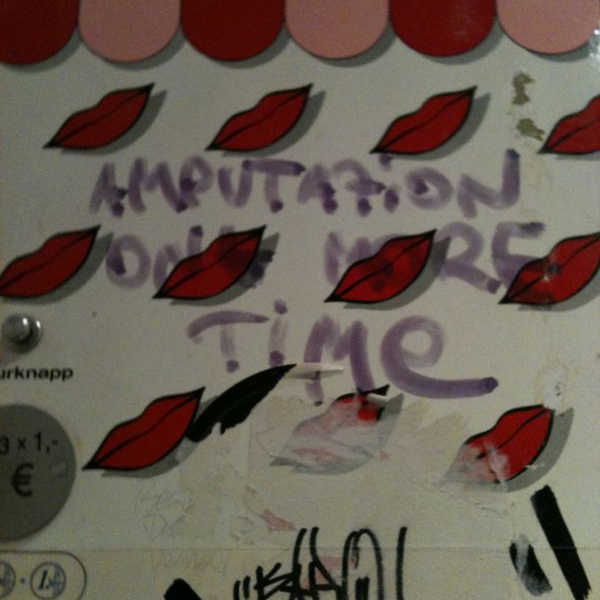 AMPUTATION
ONE MORE
TIME
urknapp
3 x 1,-
€